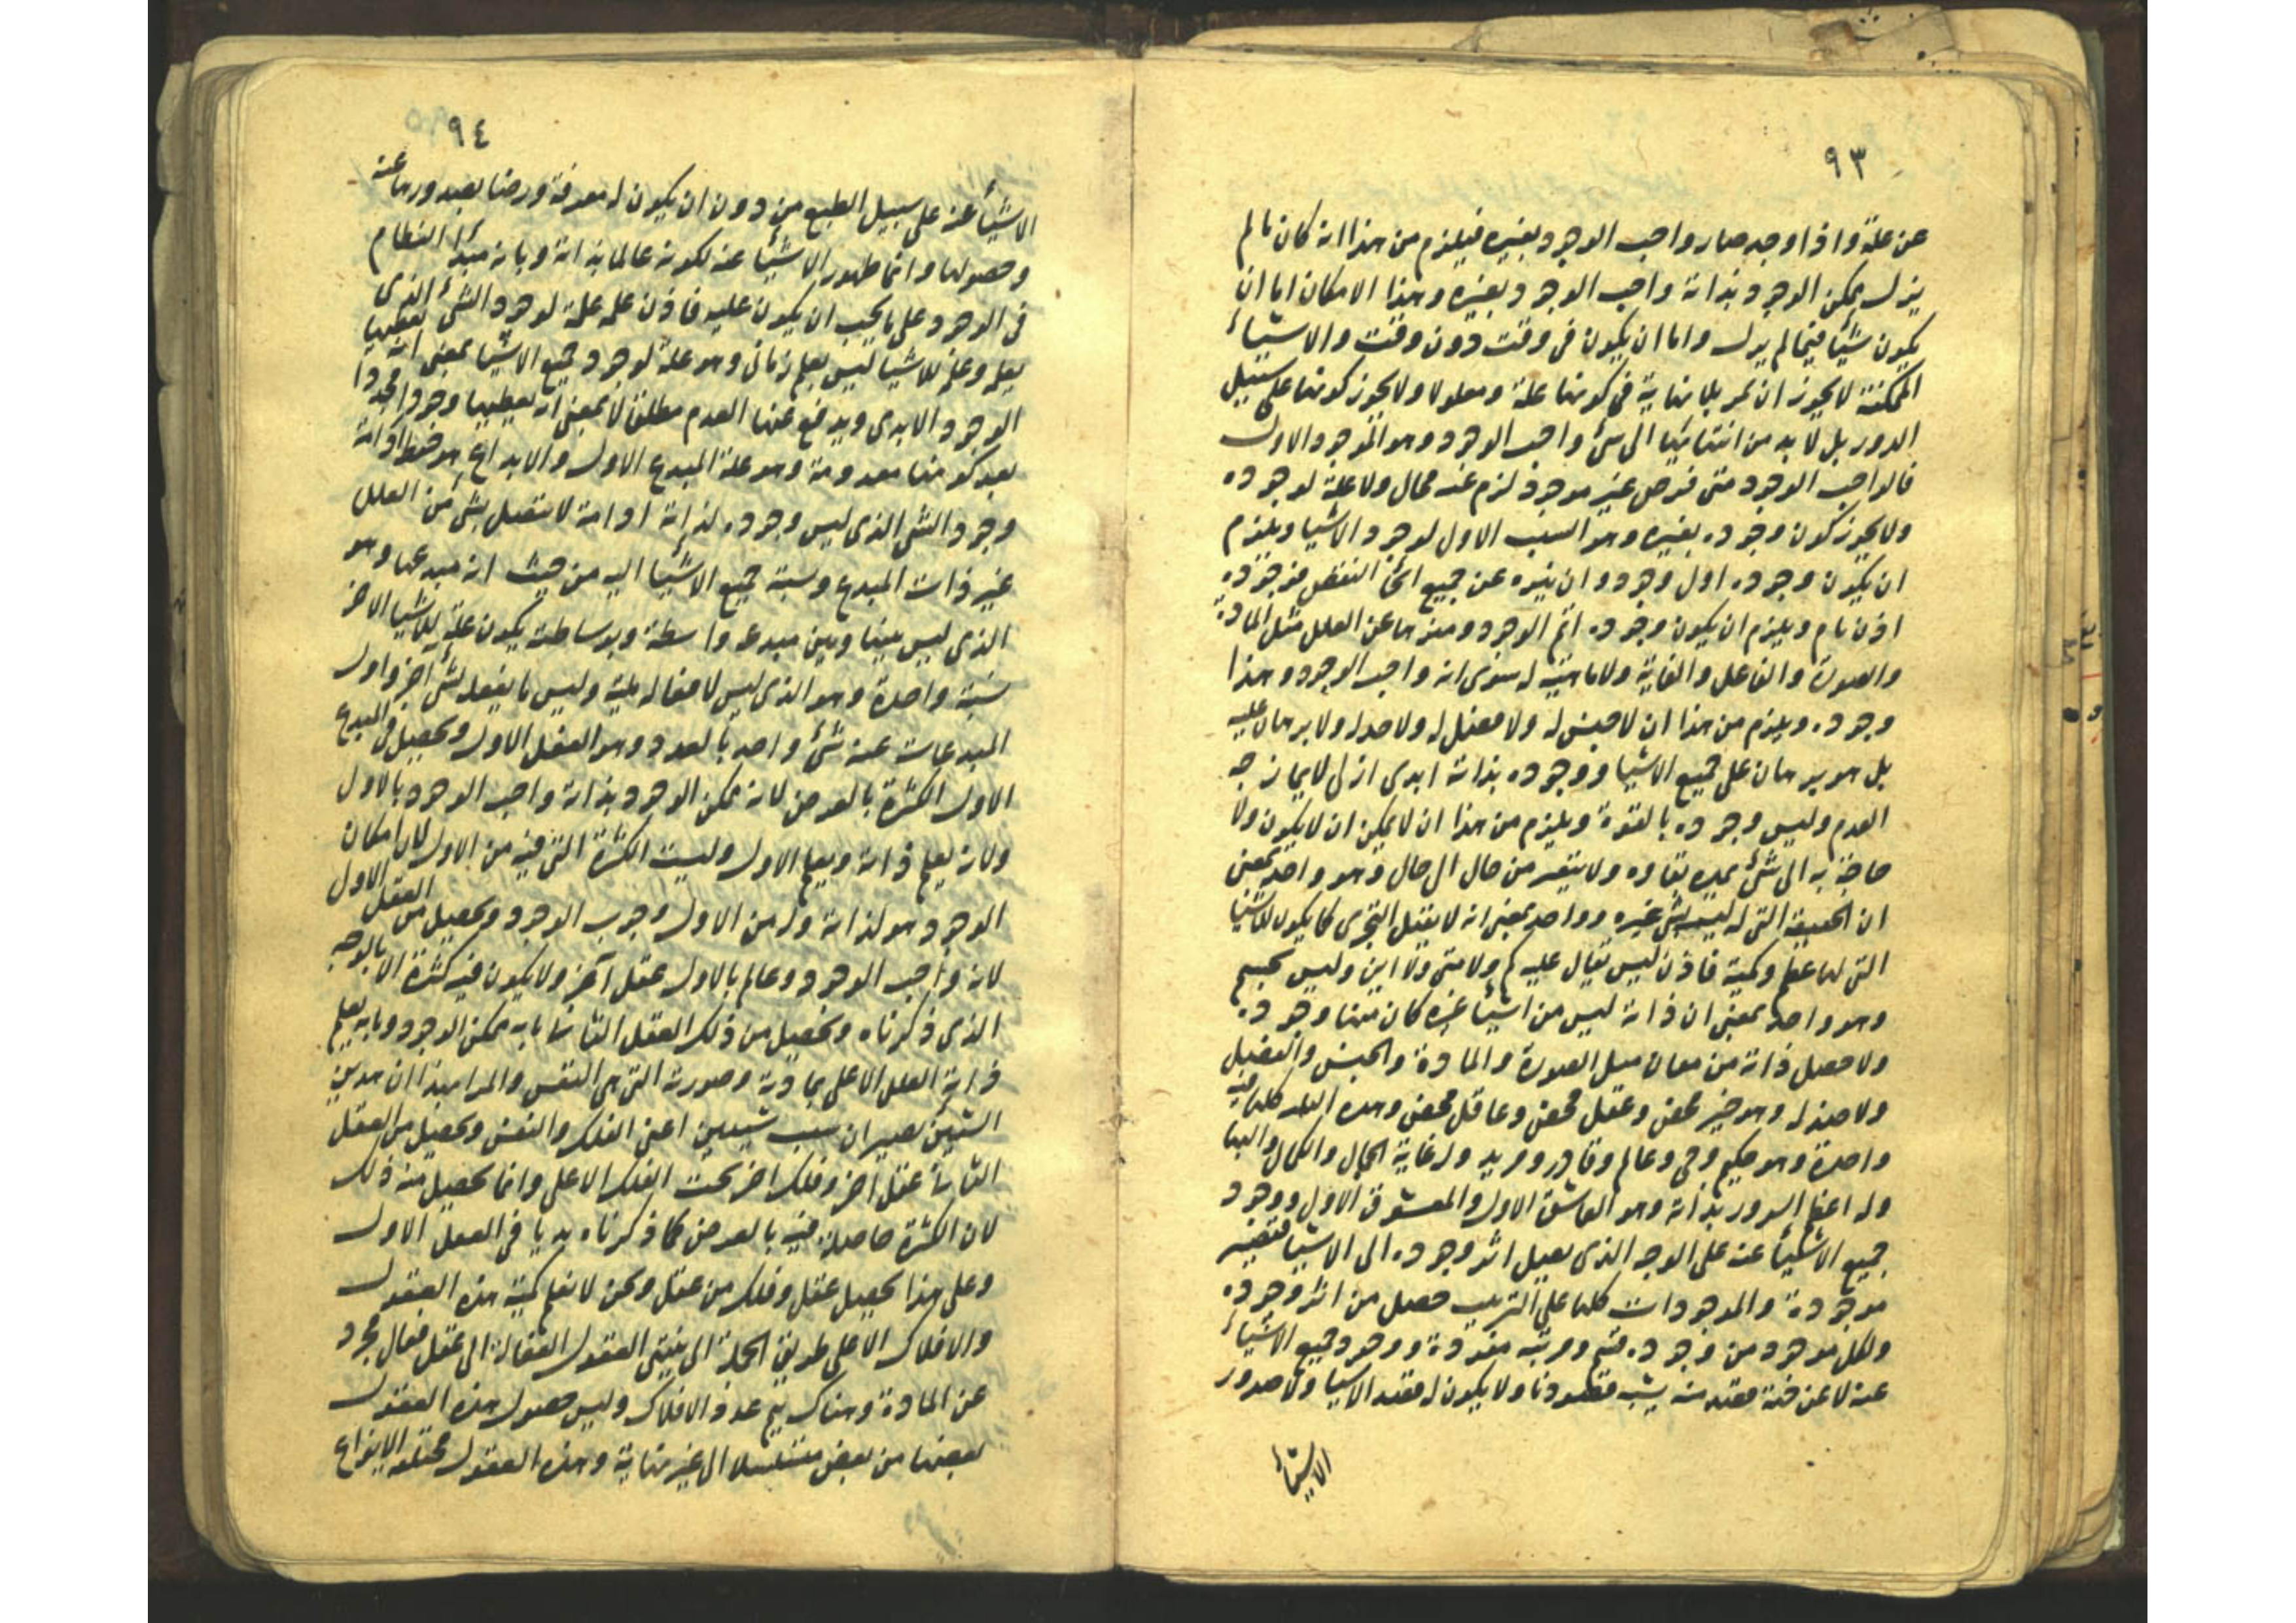 ٩٣
عن علة واذا وجد صار واجب الوجود بغيره فيلزم من هذا انه كان مالم
يزل ممكن الوجود بذاته واجب الوجود بغيره وهذا الامكان اما ان
يكون شيئا فيما لم يزل واما ان يكون فى وقت دون وقت والاشياء
الممكنة لا يجوز ان تمر بلا نهاية فى كونها علة ومعلولا ولا يجوز كونها على سبيل
الدور بل لا بد من انتهائها الى شئ واجب الوجود وهو الموجود الاول
فالواجب الوجود متى فرض غير موجود لزم عنه محال ولا علة لوجوده
ولا يجوز كون وجوده بغيره وهو السبب الاول لوجود الاشيا ويلزم
ان يكون وجوده اول وجود وان ينزه عن جميع انحا النقص فوجوده
اذن تام ويلزم ان يكون وجوده اتم الوجود ومنزها عن العلل مثل المادة
والصورة والفاعل والغاية ولا ماهية له سوى انه واجب الوجود وهذا
وجوده ويلزم من هذا ان لا جنس له ولا فصل له ولا حد له ولا برهان عليه
بل هو برهان على جميع الاشيا ووجوده بذاته ابدى ازلى لا يمازجه
العدم وليس وجوده بالقوة ويلزم من هذا ان لا يمكن ان لا يكون ولا
حاجة به الى شئ يمد بقاوه ولا يتغير من حال الى حال وهو واحد بمعنى
ان الحقيقة التى له ليست لشئ غيره وواحد بمعنى انه لا يقبل التجزى كما يكون للاشيا
التى لها عظم وكمية فاذن ليس يقال عليه كم ولا متى ولا اين وليس بجسم
وهو واحد بمعنى ان ذاته ليس من اشيا غيره كان منها وجوده
ولا حصل ذاته من معان مثل الصورة والمادة والجنس والفصل
ولا ضد له وهو خير محض وعقل محض وعاقل محض وهذه كلها فيه
واحدة وهو حكيم وحى وعالم وقادر ومريد وله غاية الجمال والكمال والبها
وله اعظم السرور بذاته وهو العاشق الاول والمعشوق الاول ووجود
جميع الاشياء عنه على الوجه الذى يصل اثر وجوده الى الاشيا فتصير
موجودة والموجودات كلها على الترتيب حصل من اثر وجوده
ولكل موجود من وجوده قسم ومرتبه مفردة ووجود جميع الاشياء
عنه لا عن جهة قصد منه يشبه قصودنا ولا يكون له قصد الاشيا ولا صدور
الاشياء
٩٤
الاشياء عنه على سبيل الطبع من دون ان يكون له معرفة ورضا بصدورها عنه
وحصولها وانما ظهور الاشياء عنه لكونه عالما بذاته وبانه مبدأ النظام
فى الوجود على ما يجب ان يكون عليه فاذن علمه علة لوجود الشئ الذى
يعلمه وعلمه للاشيا ليس بعلم زمانى وهو علة لوجود جميع الاشيا بمعنى انه يعطيها
الوجود الابدى ويدفع عنها العدم مطلقا لا بمعنى انه يعطيها وجودا مجردا
بعد كونها معدومة وهو علة المبدع الاول والابداع هو حفظ ادامة
وجود الشئ الذى ليس وجوده لذاته ادامة لا تتصل بشئ من العلل
غير ذات المبدع ونسبة جميع الاشيا اليه من حيث انه مبدعها وهو
الذى ليس بينها وبين مبدعها واسطة وبوساطته يكون علة للاشيا الاخر
نسبة واحدة وهو الذى ليس لافعاله لمية وليس ما يفعله لشئ اخر واول
المبدعات عنه شئ واحد بالعدد وهو العقل الاول ويحصل فى المبدع
الاول الكثرة بالعرض لانه ممكن الوجود بذاته واجب الوجود بالاول
ولانه يعلم ذاته ويعلم الاول وليست الكثرة التى فيه من الاول لان امكان
الوجود هو لذاته وله من الاول وجوب الوجود ويحصل من العقل الاول
لانه واجب الوجود وعالم بالاول عقل آخر ولا يكون فيه كثرة الا بالوجه
الذى ذكرناه ويحصل من ذلك العقل الثانى بانه ممكن الوجود وبانه يعلم
ذاته الفلك الاعلى بمادته وصورته التى هى النفس والمراد بهذا ان هذين
الشيئين يصيران سبب شيئين اعنى الفلك والنفس ويحصل من العقل
الثانى عقل اخر وفلك اخر تحت الفلك الاعلى وانما يحصل منه ذلك
لان الكثرة حاصلة فيه بالعرض كما ذكرناه بديا فى العقل الاول
وعلى هذا يحصل عقل وفلك من عقل ونحن لا نعلم كمية هذه العقول
والافلاك الا على طريق الجملة الى ينتهى العقول الفعالة الى عقل فعال مجرد
عن المادة وهناك يتم عدد الافلاك وليس حصول هذه العقول
بعضها من بعض متسلسلا الى غير نهاية وهذه العقول مختلفه الانواع